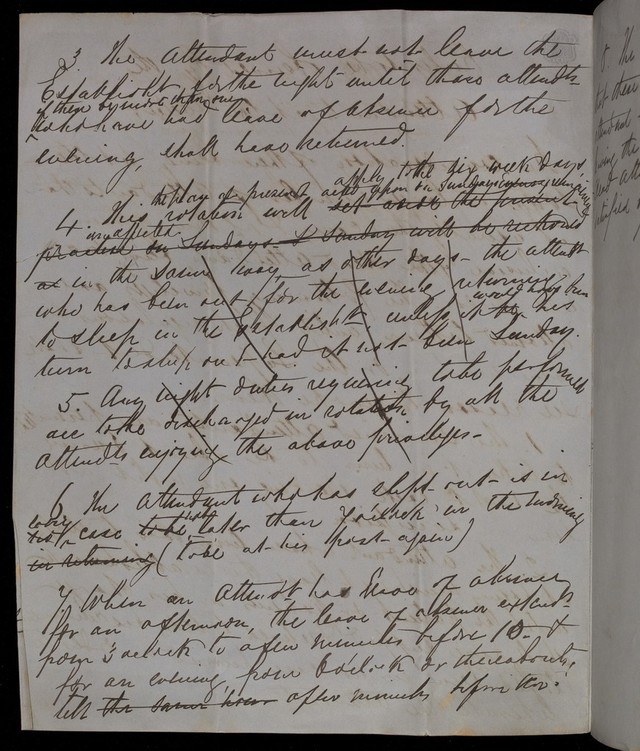 3. The Attendant must not leave the
Establisht. for the night until those attendts
if there be more than one
who have had leave of absence for the
evening, shall have returned.
apply to the six week days,
the plan at present acted upon on Sundays
4. This rotation will set aside the present
unaffected.
practice on Sundays & Sunday will be reckoned
as in the same way as other days - the attendt
who has been out for the evening, returning
would have been
to sleep in the Establisht. unless it his
turn to sleep out had it not been Sunday.
5. Any night duties requiring to be performed
are to be discharged in rotation by all the
attendts enjoying the above privileges -
6. The Attendant who has slept out is in
case to be later than 7 o'clock in the morning
in returning (to be at his post again)
7. When an Attendt has leave of absence
for an afternoon, the leave of absence extends
from 3 o'clock to a few minutes before 10 - &
for an evening, from 6 o'clock or thereabouts,
till the same hour a few minutes before ten.
8. The